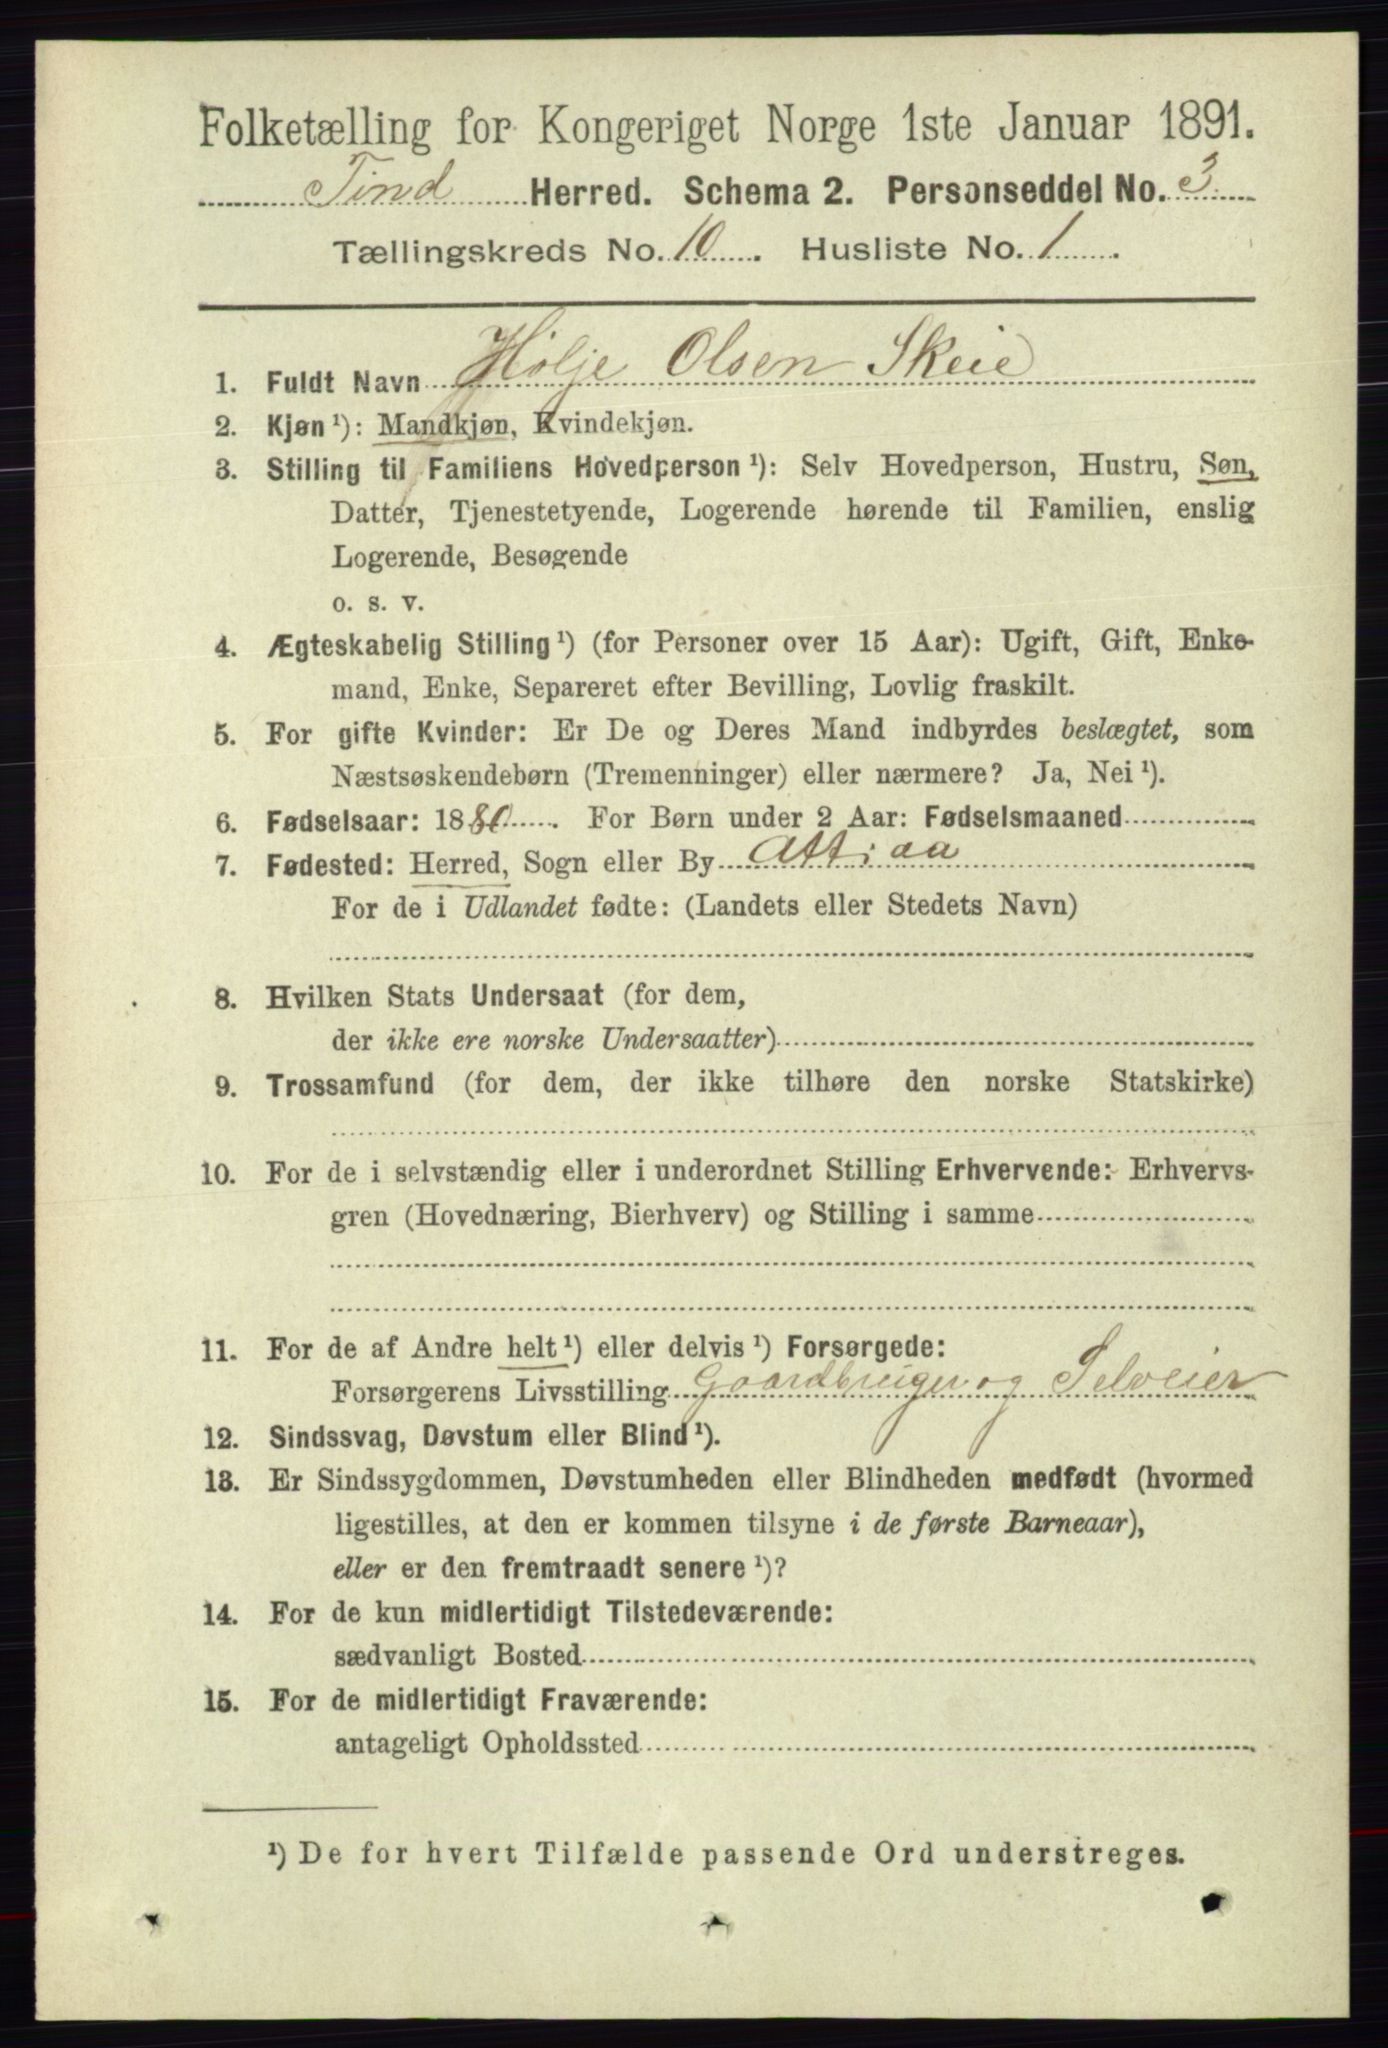 Folketælling for Kongeriget Norge 1ste Januar 1891.
Tind Herred. Schema 2. Personseddel No. 3
Tællingskreds No. 10. Husliste No. 1.
1. Fuldt Navn Hölje Olsen Skeie
2. Kjøn ¹): Mandkjøn, Kvindekjøn.
3. Stilling til Familiens Hovedperson ¹): Selv Hovedperson, Hustru, Søn,
Datter, Tjenestetyende, Logerende hørende til Familien, enslig
Logerende, Besøgende
o. s. v.
4. Ægteskabelig Stilling ¹) (for Personer over 15 Aar): Ugift, Gift, Enke-
mand, Enke, Separeret efter Bevilling, Lovlig fraskilt.
5. For gifte Kvinder: Er De og Deres Mand indbyrdes beslægtet, som
Næstsøskendebørn (Tremenninger) eller nærmere? Ja, Nei ¹).
6. Fødselsaar: 1880. For Børn under 2 Aar: Fødselsmaaned
7. Fødested: Herred, Sogn eller By Attraa
For de i Udlandet fødte: (Landets eller Stedets Navn)
8. Hvilken Stats Undersaat (for dem,
der ikke ere norske Undersaatter)
9. Trossamfund (for dem, der ikke tilhøre den norske Statskirke)
10. For de i selvstændig eller i underordnet Stilling Erhvervende: Erhvervs-
gren (Hovednæring, Bierhverv) og Stilling i samme
11. For de af Andre helt ¹) eller delvis ¹) Forsørgede:
Forsørgerens Livsstilling Gaardbruger og Selveier
12. Sindssvag, Døvstum eller Blind ¹).
13. Er Sindssygdommen, Døvstumheden eller Blindheden medfødt (hvormed
ligestilles, at den er kommen tilsyne i de første Barneaar),
eller er den fremtraadt senere ¹)?
14. For de kun midlertidigt Tilstedeværende:
sædvanligt Bosted
15. For de midlertidigt Fraværende:
antageligt Opholdssted
¹) De for hvert Tilfælde passende Ord understreges.